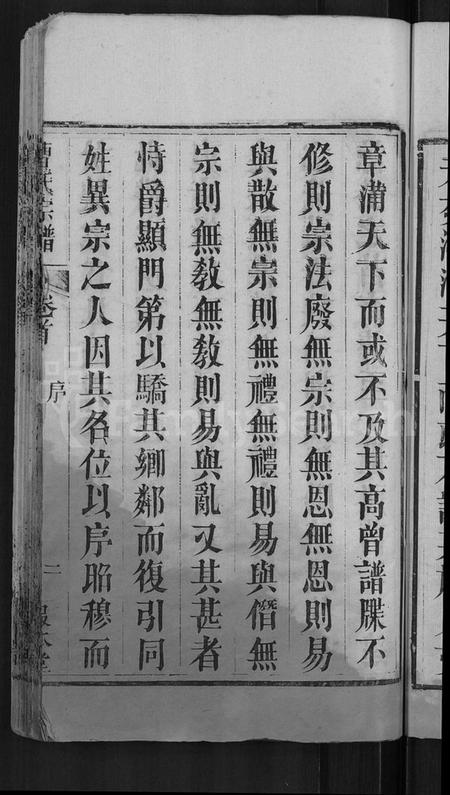 章滿天下而或不及其高曾譜牒不
修則宗法廢無宗則無恩無恩則易
與散無宗則無禮無禮則易與僭無
宗則無敎無敎則易與亂又其甚者
恃爵顯門第以驕其鄉鄰而復引同
姓異宗之人因其名位以序昭穆而
宗譜
卷首
序
二